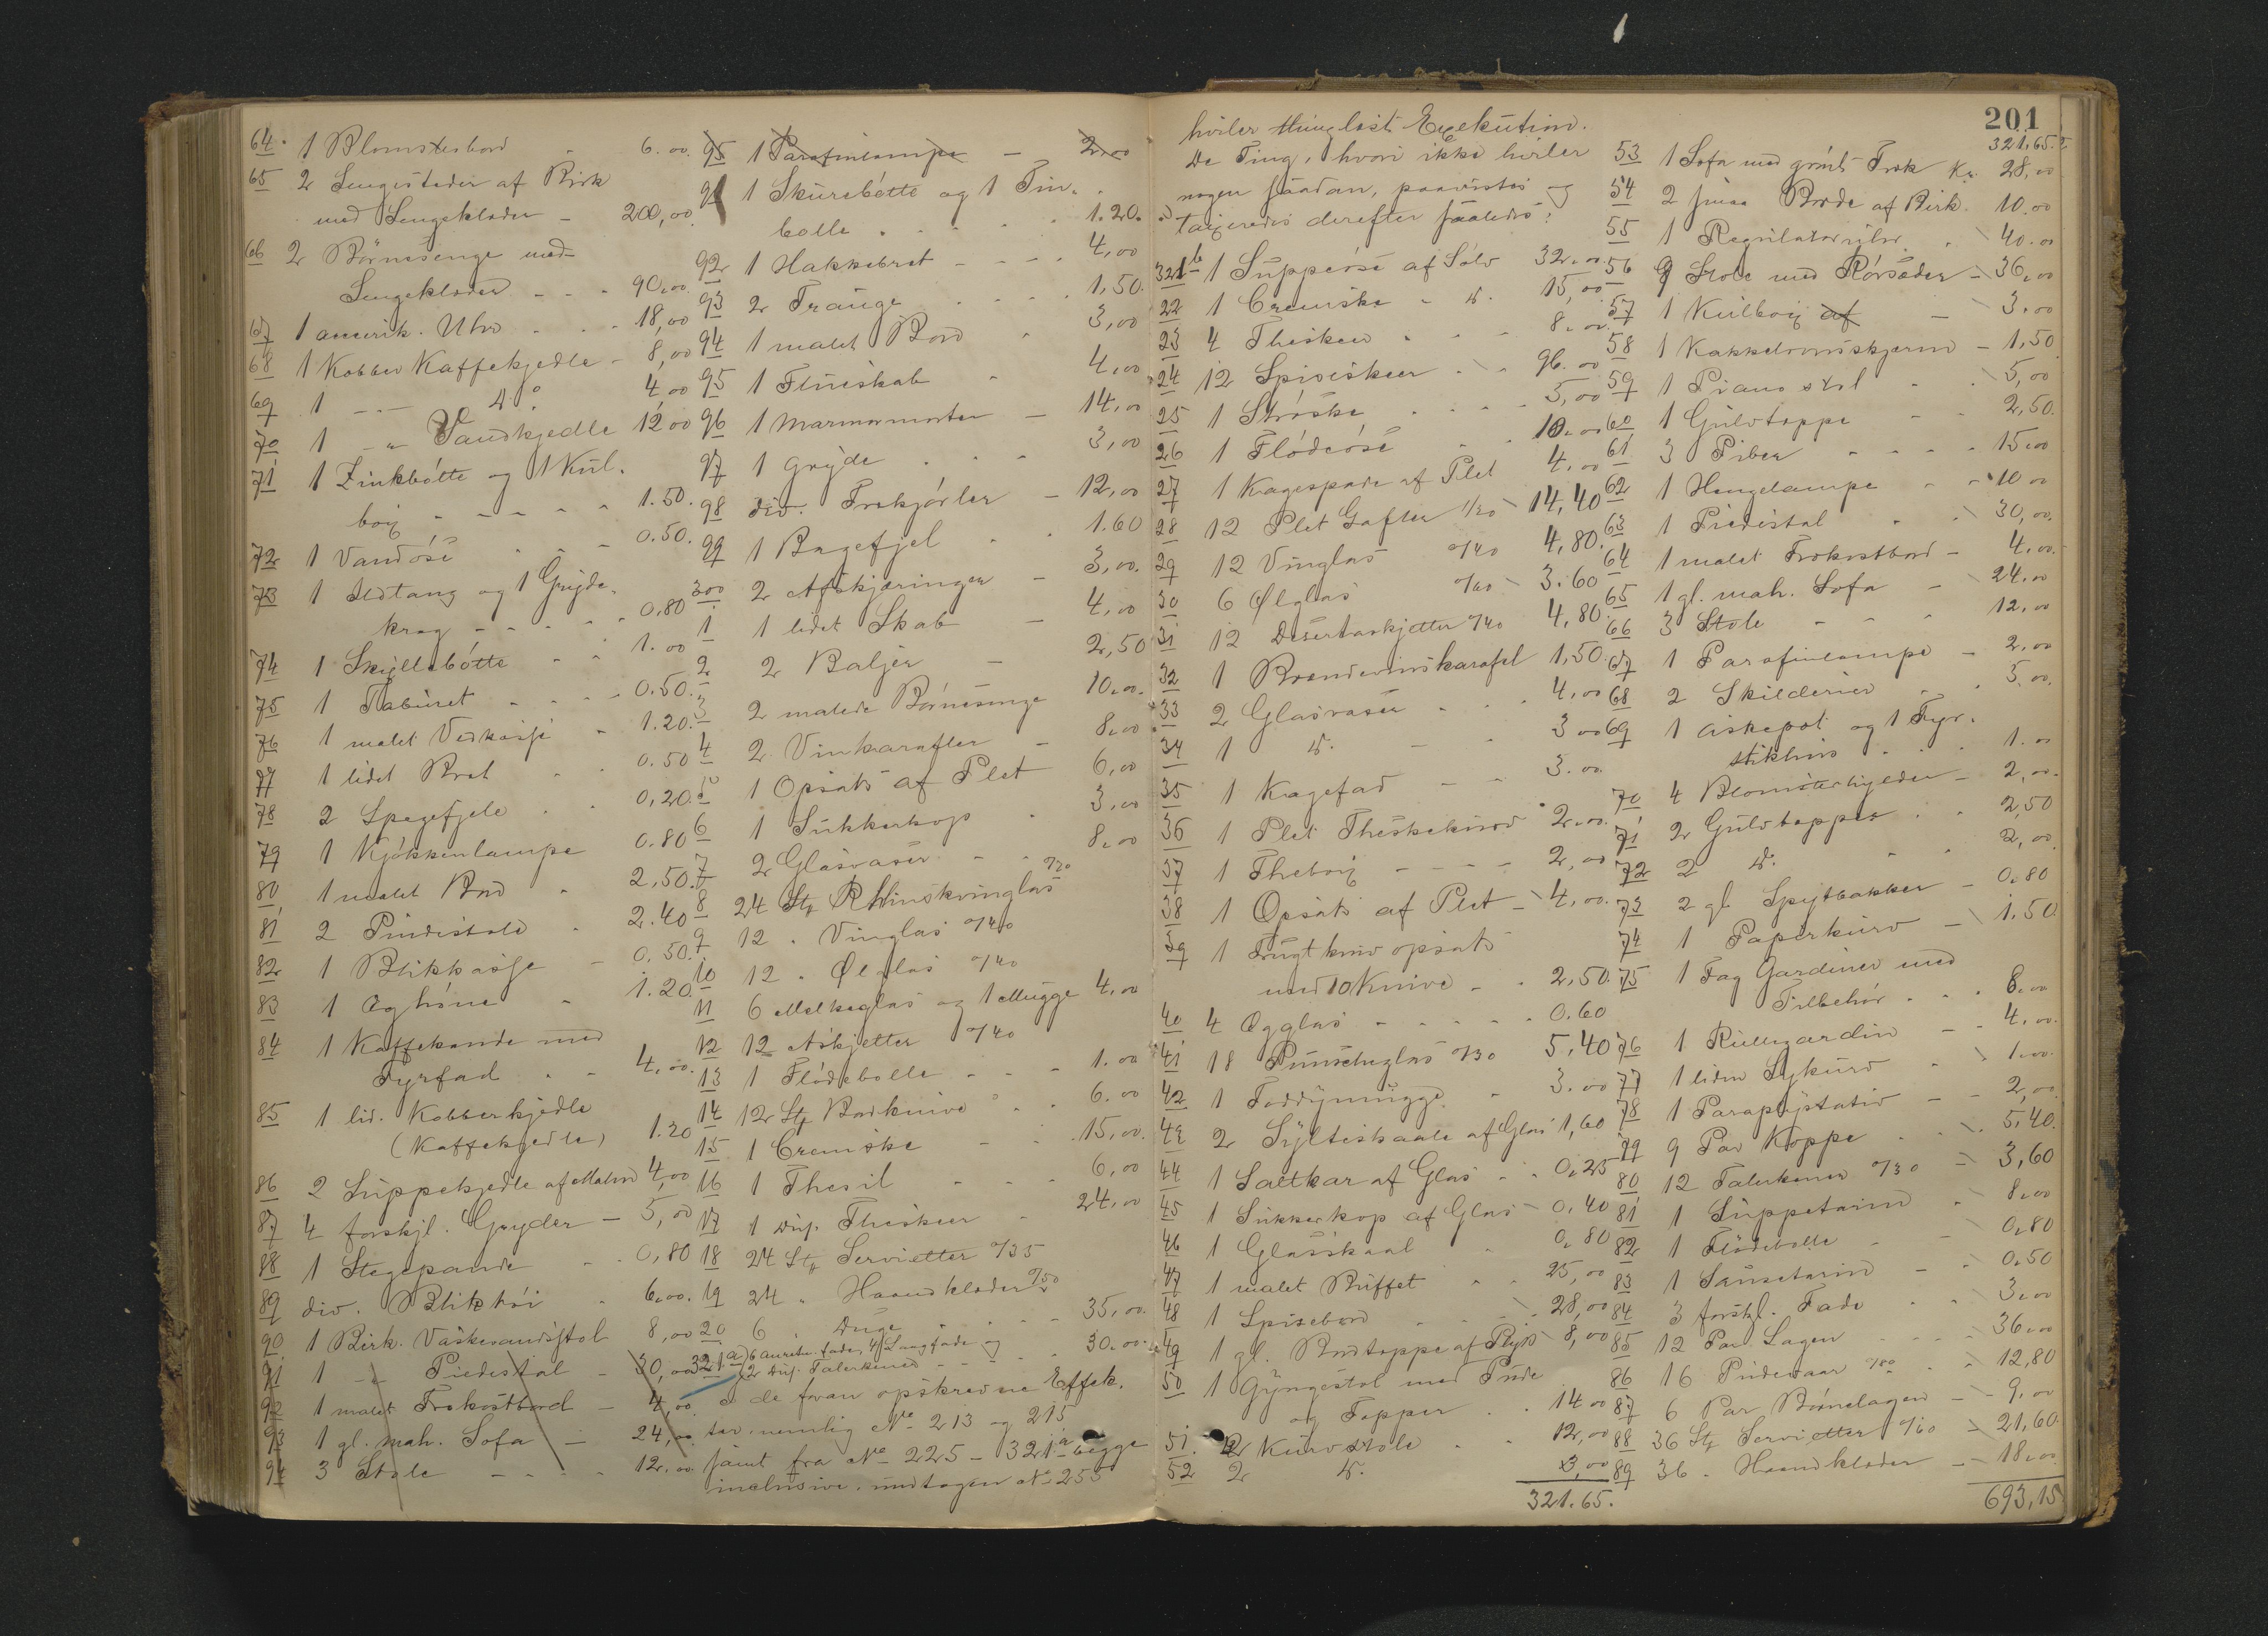 64. 1 Blomsterbord - 6.00
65 2 Sengesteder af Birk
med Sengeklæder - 200,00
66 2 Börnesenge med
Sengeklæder - - - 90,00
67 1 amerik. Uhr . . - 18,00
68 1 Kobber Kaffekjedle - 8,00
69 1 -- do 4,00
70 1 - " Vandkjedle 12,00
71 1 Zinkbötte og 1 Kul-
box - - - - - 1.50.
72 1 Vandöse - - - 0.50.
73 1 Ildtang og 1 Gryde-
krog - - - - - 0,80
74 1 Skyllebötte - - 1.00
75 1 Taburet - - - - 0.50.
76 1 malet Vedkasse - 1.20.
77 1 lidet Bret . . 0.50
78 2 Spegefjele . . 0,20.
79 1 Kjökkenlampe 0.80
80 1 malet Bord - 2,50.
81 2 Pindestole - 2.40
82 1 Blikkasse - 0.50.
83 1 Øghöne - 1.20.
84 1 Kaffekande med
Fyrfad . - 4,00.
85 1 lid. Kobberkjedle
(Kaffekjedle) 1.20
86 2 Suppekjedle af Malm 4,00
87 4 forskjl. Gryder - 5,00
88 1 Stegepande - - 0,80
89 div. Bliktöi - 6,00.
90 1 Birk. Vaskevandsstol 8,00
91 1 - " Piedestal - 30,00
92 1 malet Frokostbord - 4,00
93 1 gl. mah. Sofa - 24,00
94 3 Stole - - - - 12,00
95 1 Parafinlampe - 2,00
91 1 Skurebötte og 1 Tin-
bolle . - - - . 1.20.
92 1 Hakkebret - - - - 4,00
93 2 Trauge . - - . 1,50.
94 1 malet Bord - 3,00
95 1 Flueskab - 4,00
96 1 Marmormorter - 14,00
97 1 Gryde . . - 3,00
98 div. Trekjörler - 12,00
99 1 Bagefjel . . 1.60
300 2 Afskjæringer - 3,00.
1 1 lidet Skab - 4,00
2 2 Baljer - 2,50
3 2 malede Börnesenge 10,00.
4 2 Vinkarafler - 8,00
5 1 Opsats af Plet 6,00
6 1 Sukkerkop . 3,00
7 2 Glasvaser - - 8,00
8 24 Stk Rhinskvinglas 0/30
9 12 " Vinglas 0/40
10 12 " Ølglas 0/40
11 6 Melkeglas og 1 Mugge 4,00
12 12 Asjetter 0/40
13 1 Flödebolle - - - 1.00
14 12 Stk Bordknive . . 6.00
15 1 Cremske - . . 15,00.
16 1 Thesil - - - 6,00
17 1 Dus. Theskeer - 24,00
18 24 Stk Servietter 0/35
19 24 " Haandklæder 0/50
20 6 Duge - - - 35,00.
321a) 6 fade, 4 Langfade og
2 Dus. Talerkener - - . . 30,00.
I de foran opskrevne Effek-
ter, nemlig No 213 og 215
samt fra No 225 - 321a begge
inclusive, undtagen No 255
hviler thinglæst Exekution.
De Ting, hvori ikke hviler
nogen saadan, paavistes og
taxeredes derefter saaledes:
321b 1 Suppeöse af Sölv 32,00
22 1 Cremske - do. 15,00
23 4 Theskeer . - - 8,00.
24 12 Spiseskeer . - 96.00
25 1 Ströske . - - - 5,00
26 1 Flödeöse - - 10,00
27 1 Kagespade af Plet 4,00
28 12 Plet Gafler 1/20 - 14,40
29 12 Vinglas 0/40 4,80.
30 6 Ølglas 0/60 - 3.60
31 12 Desertaskjetter 0/40 4,80.
32 1 Brændevinskarafel 1,50.
33 2 Glasvaser . - - 4,00
34 1 do. - - 3,00
35 1 Kagefad - - 3.00.
36 1 Plet Theskekurv 2,00.
37 1 Thebox - - - - 2,00
38 1 Opsats af Plet - 4,00.
39 1 Frugtkniv opsats
med 10 Knive - - 2,50.
40 4 Ægglas - - - - - 0.60
41 18 Punschglas 0/30 5,40
42 1 Toddymugge - 3.00
43 2 Sylteskaale af Glas 1,60
44 1 Saltkar af Glas - . 0,25
45 1 Sukkerkop af Glas - 0,40
46 1 Glasskaal - 0,80
47 1 malet Buffet . . 25,00
48 1 Spisebord - - - 28,00
49 1 gl. Bordteppe af Plys 8,00
50 1 Gyngestol med Pude
og Tepper . . 14,00
51. 2 Kurvstole . . 12,00
52 2 do. 3,00
321.65.
201
321,65.
53 1 Sofa med grönt Træk Kr. 28,00
54 2 smaa Borde af Birk. 10.00
55 1 Regulatoruhr . 40.00
56 9 Stole med Rörsæder - 36,00
57 1 Kulbox af - 3.00
58 1 Kakkelovnsskjerm - 1,50
59 1 Pianostol - . 5,00
60 1 Gulvteppe - - 2,50.
61 3 Piber - - - - 15,00
62 1 Hengelampe - - 10,00
63 1 Piedestal - - 30,00.
64 1 malet Frokostbord - 4,00.
65 1 gl. mah. Sofa - 24.00
66 3 Stole - - - 12,00
67 1 Parafinlampe - 2,00
68 2 Skilderier - . 5.00.
69 1 Askepot og 1 Fyr-
stikhus . . . 1.00
70 4 Blomsterhylder - 2,00.
71 2 Gulvtepper . . 2,50
72 2 do. - - 2,00
73 2 gl. Spytbakker - 0,80
74 1 Papirkurv - 1,50
75 1 Fag Gardiner med
Tilbehör . . . 8,00
76 1 Rullegardin - - 4,00.
77 1 liden Sykurv - 1,00.
78 1 Paraplystativ - - 2,00
79 9 Par Koppe . . 5,40.
80 12 Talerkener 0/30 - 3,60
81 1 Suppeterin - 8,00
82 1 Flödebolle - - 0,80
83 1 Sauseterin - - 0,50
84 3 forskjl. Fade . . 3,00
85 12 Par Lagen - - - 36,00
86 16 Pudevaar 0/80 - . 12,80
87 6 Par Börnelagen - - 9,00
88 36 Stk Servietter 0/60 - 21,60
89 36 - Haandklæder - - 18,00
693,15